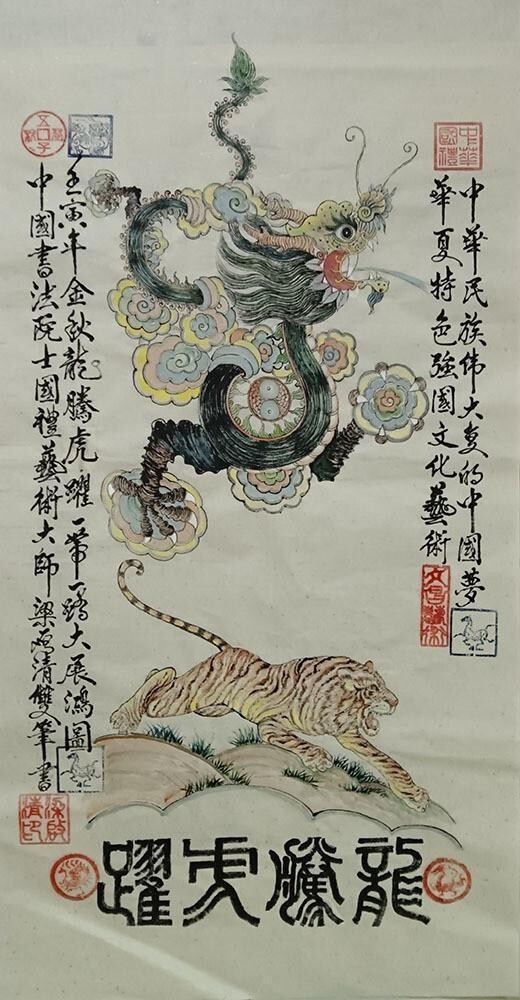 中華民族伟大复的中國夢
華夏特色強國文化藝術
壬寅年金秋龍騰虎躍一帶一路大展鴻圖
中國書法院士國禮藝術大師梁启清雙筆書
龍騰虎躍
中華國禮
梁啟清印